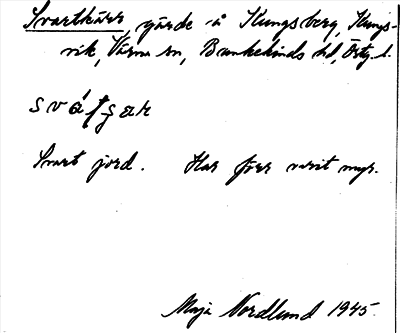 Svartkärr, gärde å Kungsberg, Kungs-
vik, Värna sn, Bankekinds hd, Östg. l.
Svart jord. Har förr varit myr.
Maja Nordlund 1945.